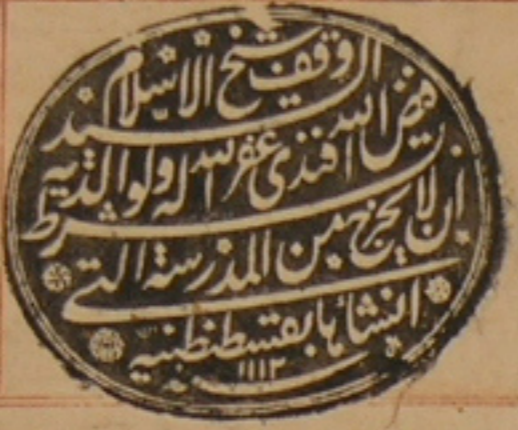 الوقف شيخ الاسلام السيد
فيض الله افندى غفر الله له ولوالديه
بشرط ان لا يخرج من المدرسة التى
انشاها بقسطنطنيه
سنه ١١١٢